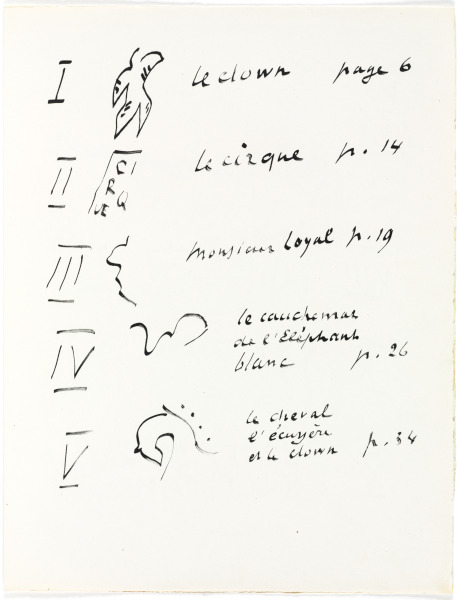 I le clown page 6
II CIRQUE le cirque p. 14
III monsieur Loyal p. 19
IV le cauchemar
de l'Eléphant
blanc p. 26
V le cheval
l'écuyère
et le clown p. 34